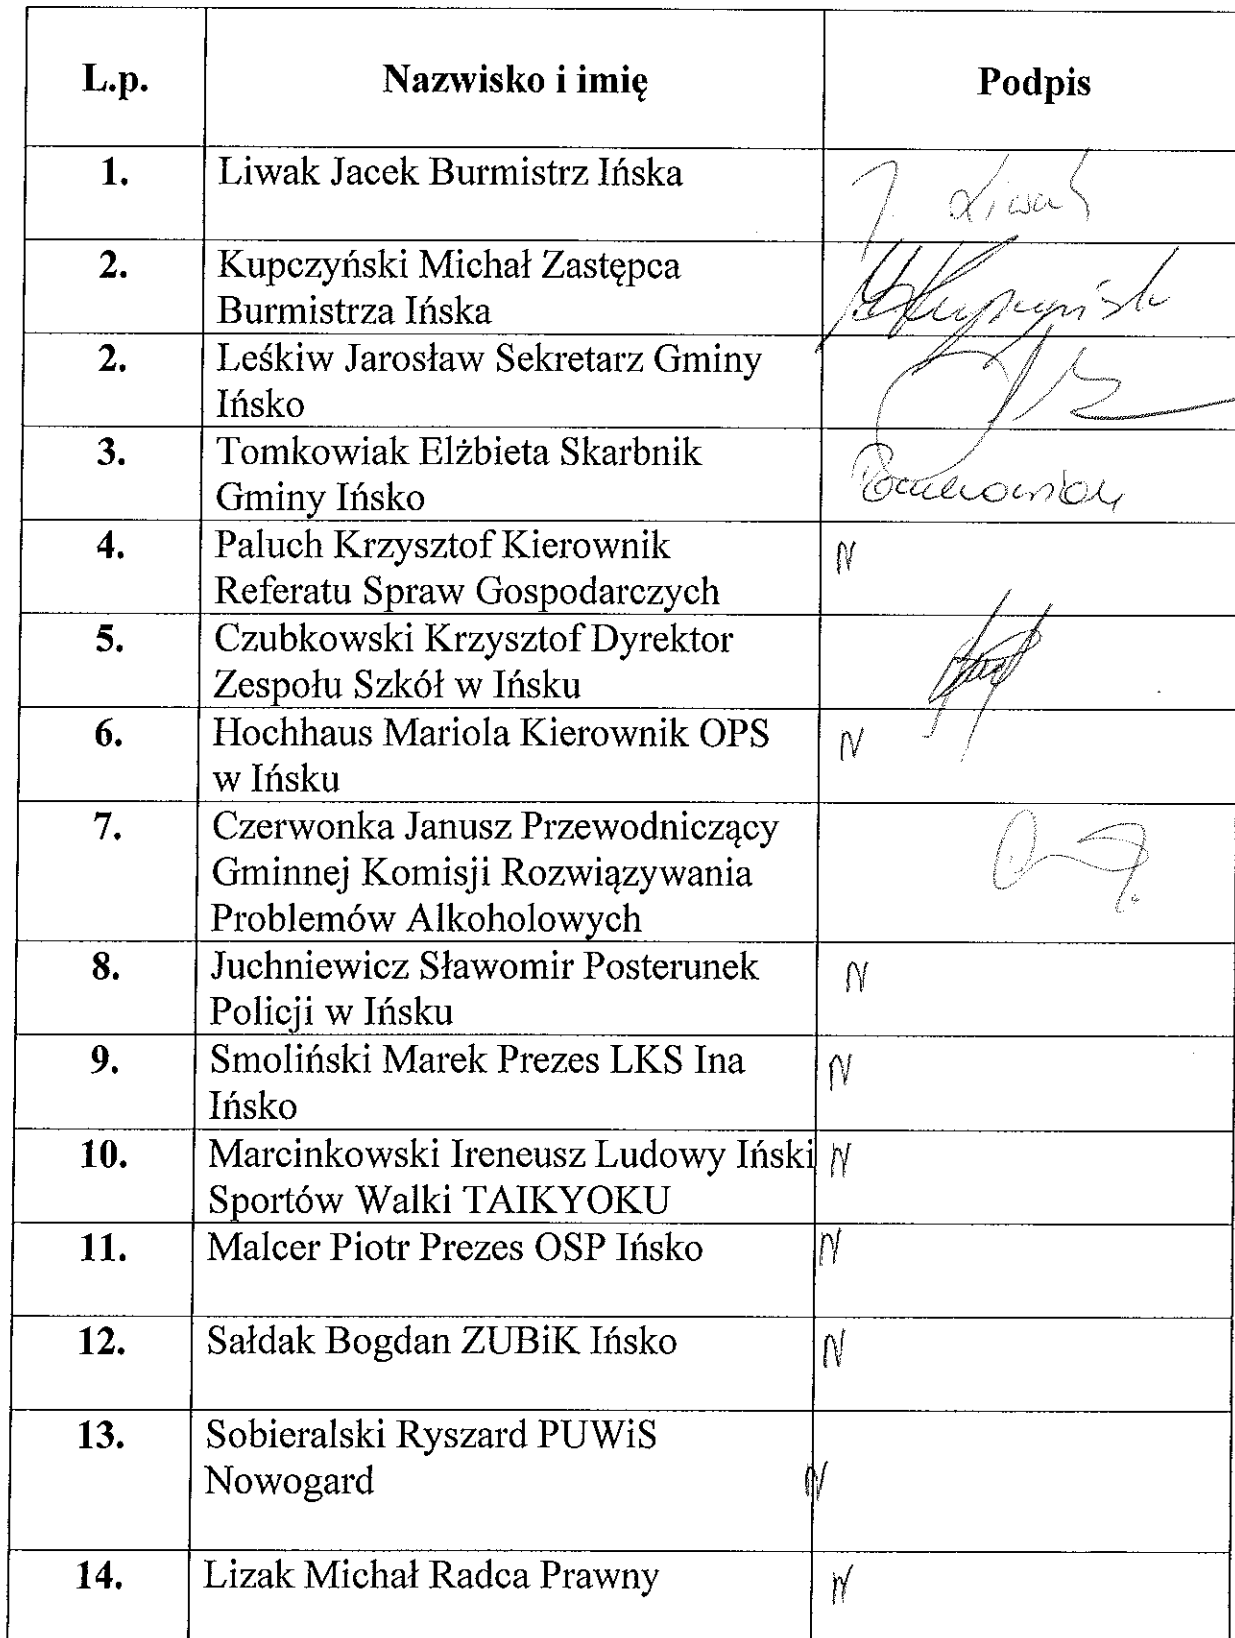 L.p.
Nazwisko i imię
Podpis
1.
Liwak Jacek Burmistrz Ińska
J. Liwak
2.
Kupczyński Michał Zastępca
Burmistrza Ińska
2.
Leśkiw Jarosław Sekretarz Gminy
Ińsko
3.
Tomkowiak Elżbieta Skarbnik
Gminy Ińsko
4.
Paluch Krzysztof Kierownik
Referatu Spraw Gospodarczych
N
5.
Czubkowski Krzysztof Dyrektor
Zespołu Szkół w Ińsku
6.
Hochhaus Mariola Kierownik OPS
w Ińsku
N
7.
Czerwonka Janusz Przewodniczący
Gminnej Komisji Rozwiązywania
Problemów Alkoholowych
8.
Juchniewicz Sławomir Posterunek
Policji w Ińsku
N
9.
Smoliński Marek Prezes LKS Ina
Ińsko
N
10.
Marcinkowski Ireneusz Ludowy Iński
Sportów Walki TAIKYOKU
N
11.
Malcer Piotr Prezes OSP Ińsko
N
12.
Sałdak Bogdan ZUBiK Ińsko
N
13.
Sobieralski Ryszard PUWiS
Nowogard
N
14.
Lizak Michał Radca Prawny
N